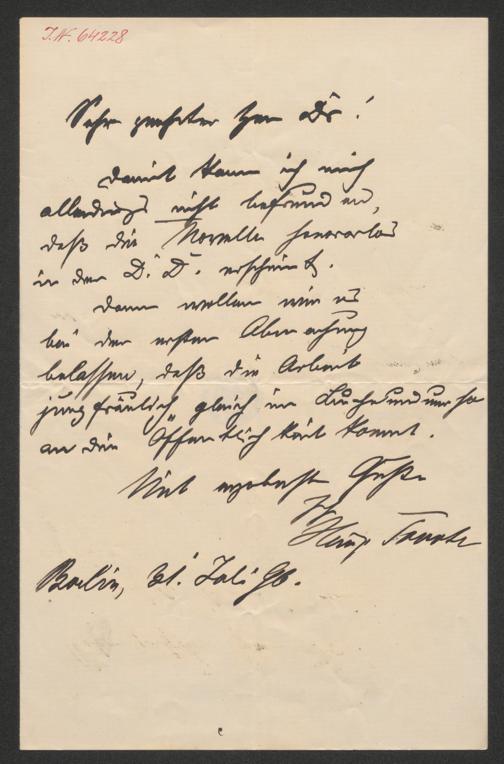 I.N. 64228
Sehr geehrter Herr Dr!
Damit kann ich mich
allerdings nicht befreunden,
daß die Novelle honorarlos
in der D. D. erscheint.
Dann wollen wir es
bei der ersten Abmachung
belassen, daß die Arbeit
jungfräulich gleich im Buche
an die Öffentlichkeit kommt.
Mit ergebenst Gruß
Ihr
Heinz Tovote
Berlin, 31. Juli 96.